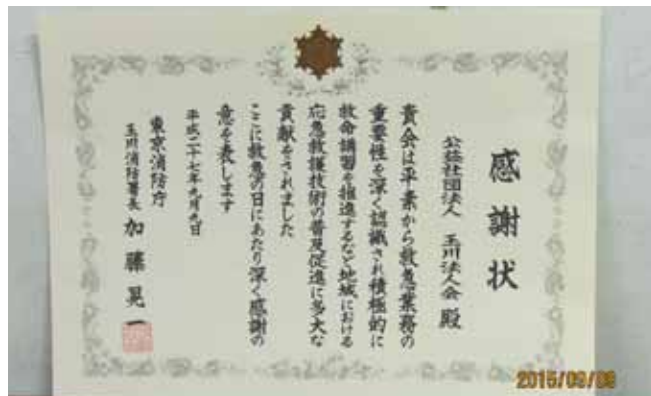 感謝状
公益社団法人 玉川法人会 殿
貴会は平素から救急業務の
重要性を深く認識され積極的に
救命講習を推進するなど地域における
応急救護技術の普及促進に多大な
貢献をされました
ここに救急の日にあたり深く感謝の
意を表します
平成二十七年九月九日
東京消防庁
玉川消防署長 加藤晃一
2015/09/09